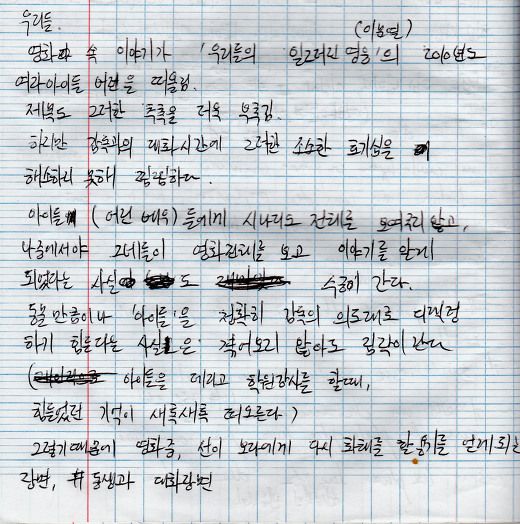 우리들.
(이문열)
영화 속 이야기가 '우리들의 일그러진 영웅'의 2010년도
여자아이들 버전을 떠올림.
제목도 그러한 추측을 더욱 부추김.
하지만 감독과의 대화시간에 그러한 소소한 호기심은
해소하지 못해 찜찜하다.
아이들 (어린 배우)들에게 시나리오 전체를 보여주지 않고,
나중에서야 그네들이 영화전체를 보고 이야기를 알게
되었다는 사실도 수긍이 간다.
동물만큼이나 '아이들'을 정확히 감독의 의도대로 디렉팅
하기 힘들다는 사실은 겪어보지 않아도 짐작이 간다
( 아이들을 데리고 학원강사를 할때,
힘들었던 기억이 새록새록 떠오른다)
그렇기때문에 영화중, 선이 보라에게 다시 화해를 할 용기를 얻게되는
장면, # 동생과 대화장면